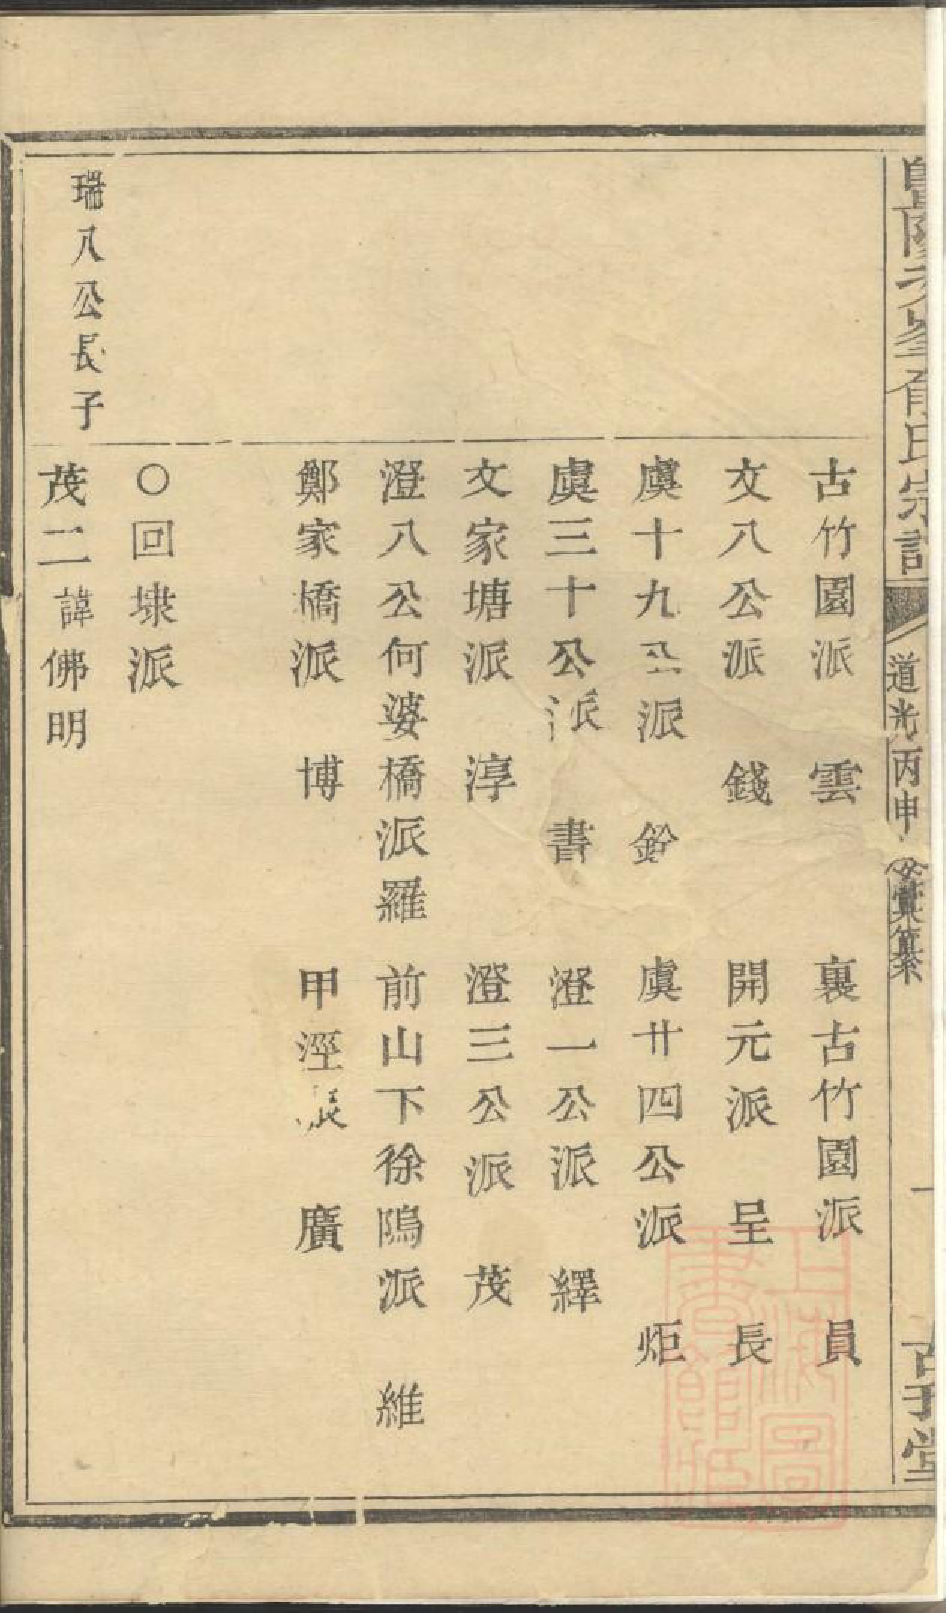 暨陽次峯俞氏宗譜
道光丙申 彙纂
古竹園派 雲 裏古竹園派 員
文八公派 錢 開元派 呈 長
虞十九公派 鈴 虞廿四公派 炬
虞三十公派 書 澄一公派 繹
文家塘派 淳 澄三公派 茂
澄八公何婆橋派 羅 前山下徐隝派 維
鄭家橋派 博 甲澄派 廣
○回埭派
瑞八公長子
茂二諱佛明
上海圖書館藏